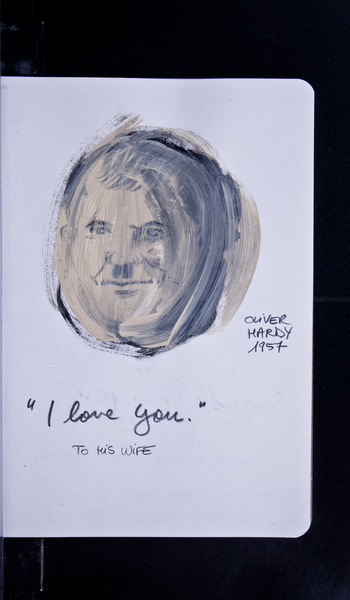 OLIVER
HARDY
1957
"I love you."
TO HIS WIFE